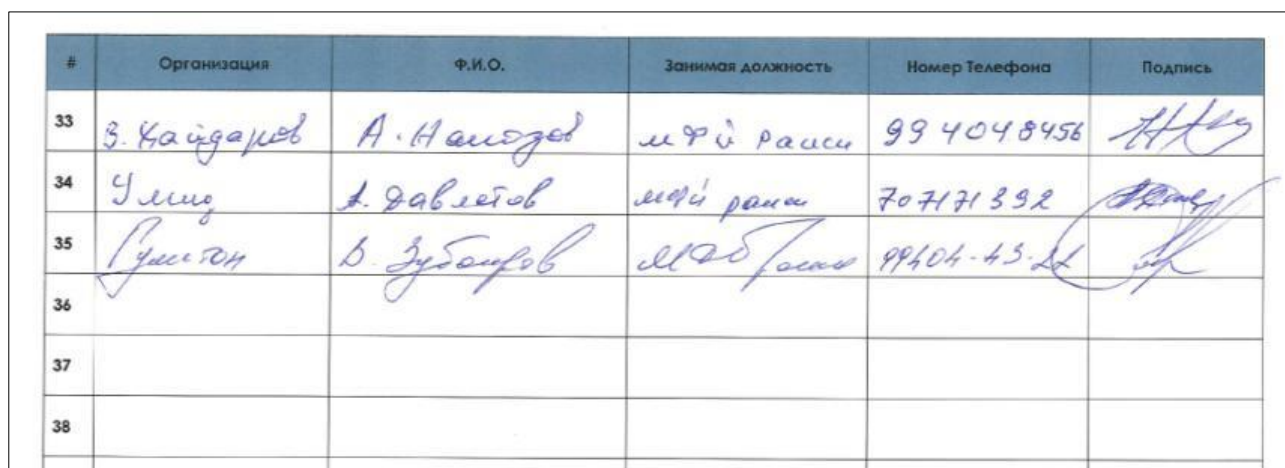 # Организация Ф.И.О. Занимая должность Номер Телефона Подпись
33 З. Хайдаров А. Намозов МФЙ раиси 99 404 8456
34 Умид А. Давлетов МФЙ раиси 707171392
35 Гулистон Зубаиров 99404-43-22
36
37
38